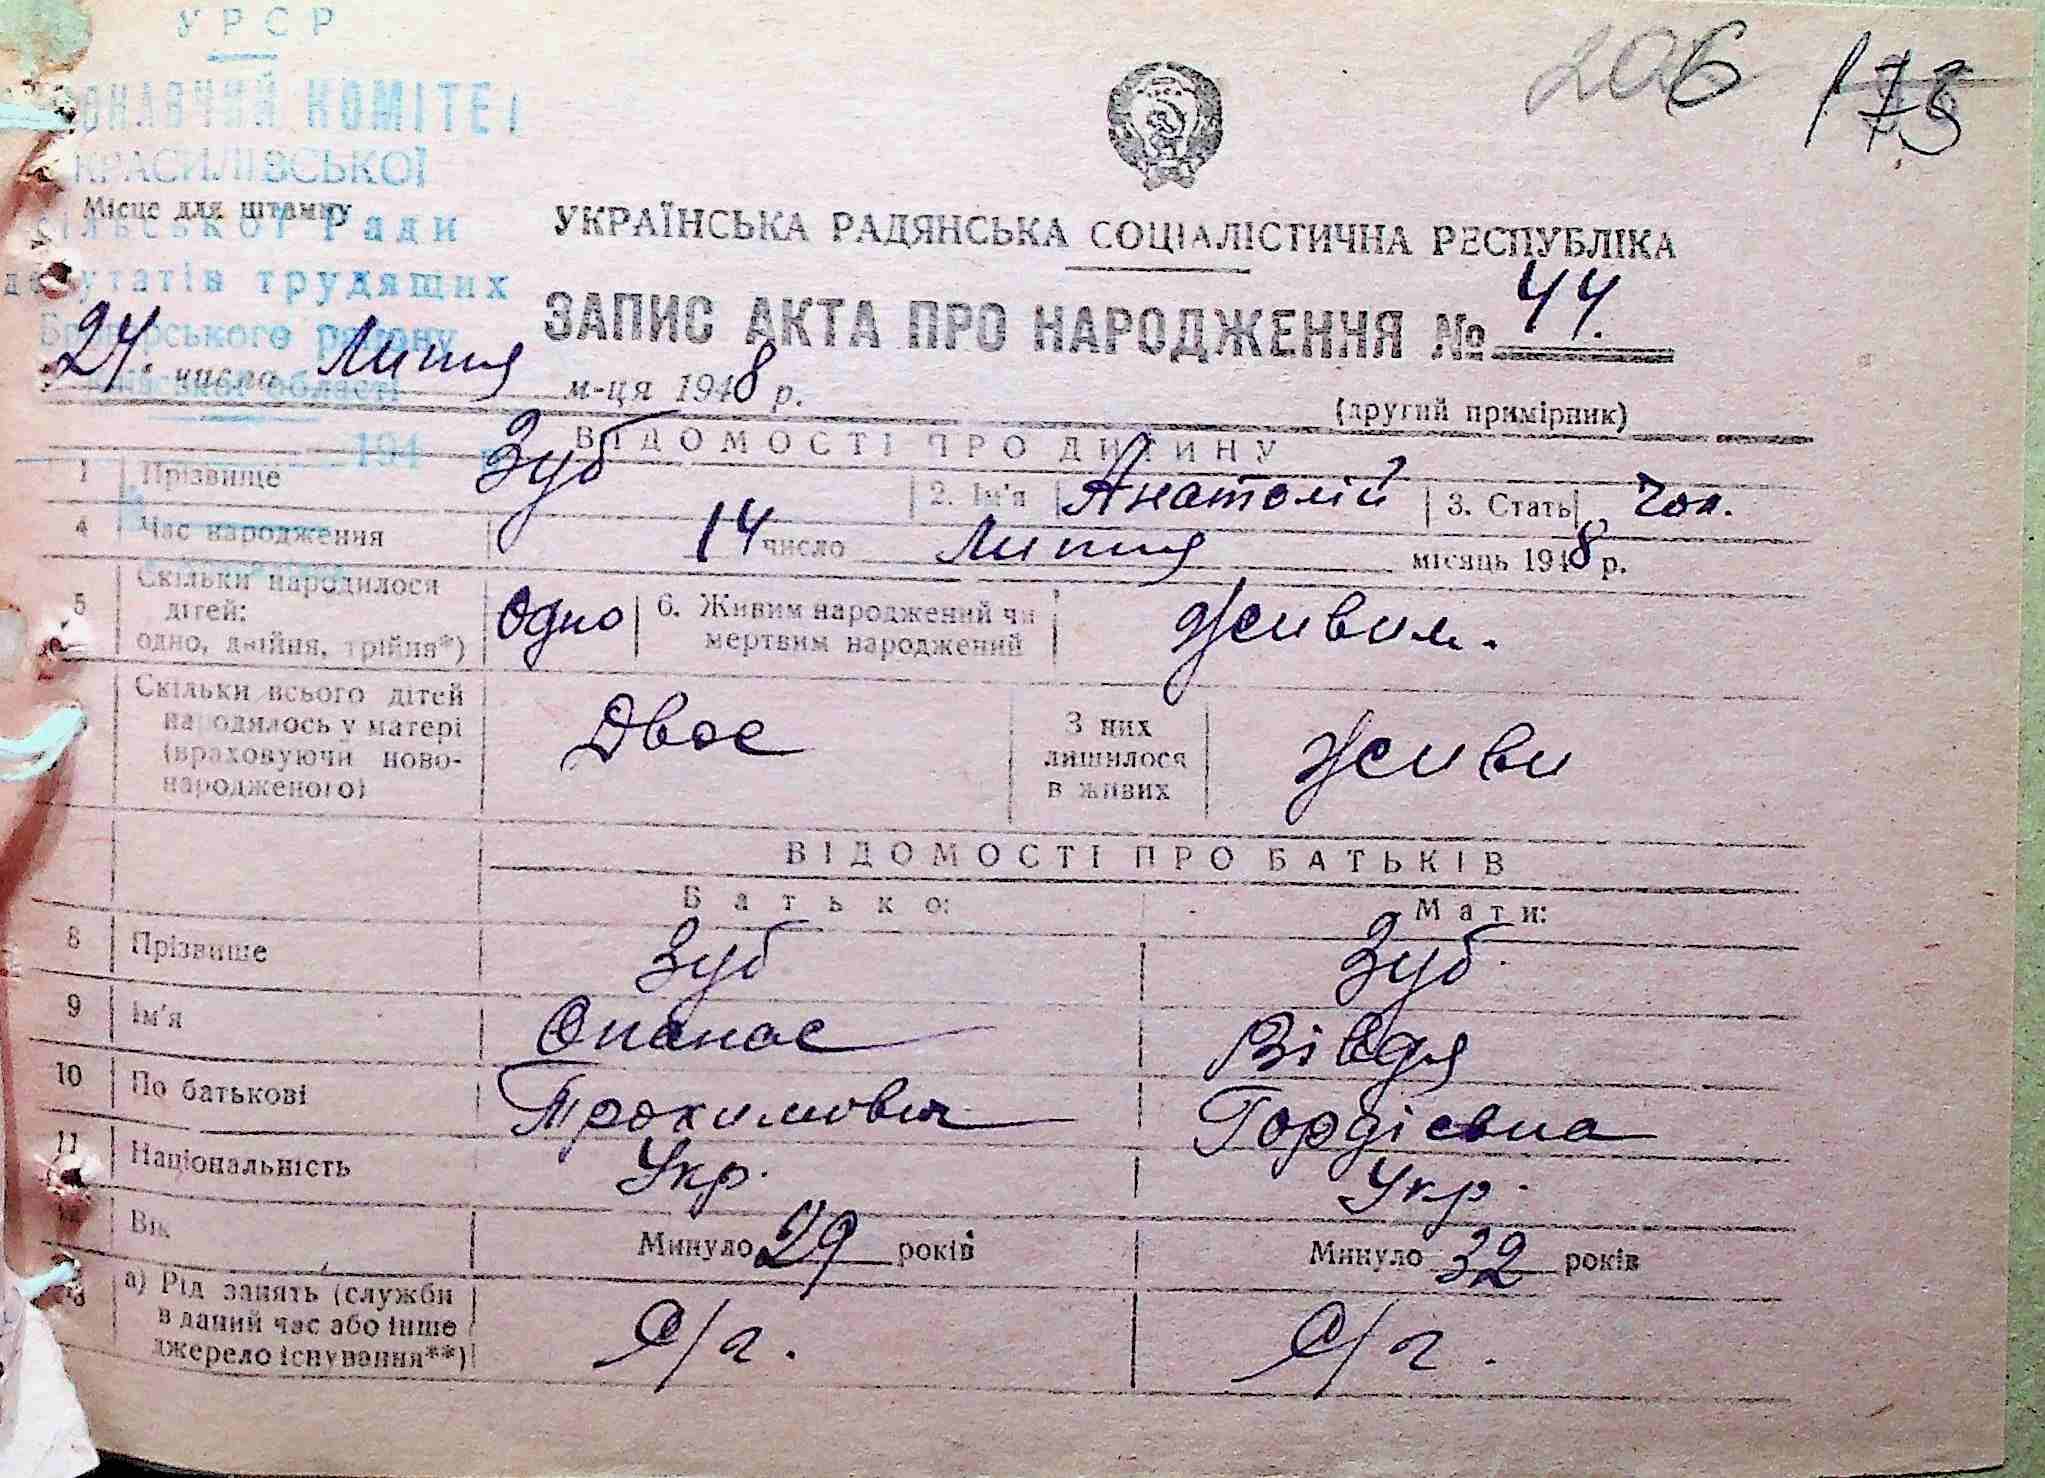 УРСР
КОМІТЕТ
КРАСИЛІВСЬКОЇ
Місце для штампу
сільської Ради
депутатів трудящих
Броварського району
Київської області
194
206 173
УКРАЇНСЬКА РАДЯНСЬКА СОЦІАЛІСТИЧНА РЕСПУБЛІКА
ЗАПИС АКТА ПРО НАРОДЖЕННЯ № 44.
24. числа Липня м-ця 1948 р.
(другий примірник)
ВІДОМОСТІ ПРО ДИТИНУ
1 Прізвище Зуб 2. Ім'я Анатолій 3. Стать Чол.
4 Час народження 14 число Липня місяць 1948 р.
5 Скільки народилося
дітей:
одно, двійня, трійня*) Одно 6. Живим народжений чи
мертвим народжений Живим.
Скільки всього дітей
народилось у матері
(враховуючи ново-
народженого) Двоє З них
лишилося
в живих живи
ВІДОМОСТІ ПРО БАТЬКІВ
Батько: Мати:
8 Прізвище Зуб Зуб.
9 Ім'я Опанас Вівдя
10 По батькові Трохимович Гордієвна
11 Національність Укр. Укр.
Вік Минуло 29 років Минуло 32 років
13 а) Рід занять (служби
в даний час або інше
джерело існування**) С/г. С/г.